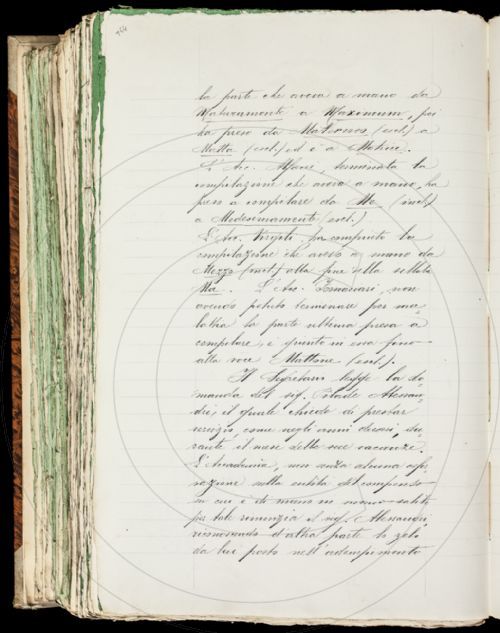 la parte che aveva a mano da
Maturamente a Maximum, poi
ha preso da Materozzo (incl.) a
Matta (incl.) ed è a Matino.
L'Arc. Alfani, terminata la
compilazione che aveva a mano, ha
preso a compilare da Me (incl.)
a Medesimamente (incl.)
L'Arc. ha compiuto la
compilazione che aveva a mano da
Mezzo (incl.) alla fine della sillaba
Me. L'Arc. non
avendo potuto terminare per ma-
lattia la parte ultima presa a
compilare, è giunto in essa fino
alla voce Mattone (incl.).
Il Segretario legge la do-
manda del sig. Alessan-
dri, il quale chiede di prestar
servizio come negli anni decorsi, du-
rante il mese delle sue vacanze.
L'Accademia, non senza alcuna
sulla entità del compenso
in cui è di mano in mano salito
per tale servizio il sig. Alessandri,
riconoscendo d'altra parte lo zelo
da lui posto nell'adempimento